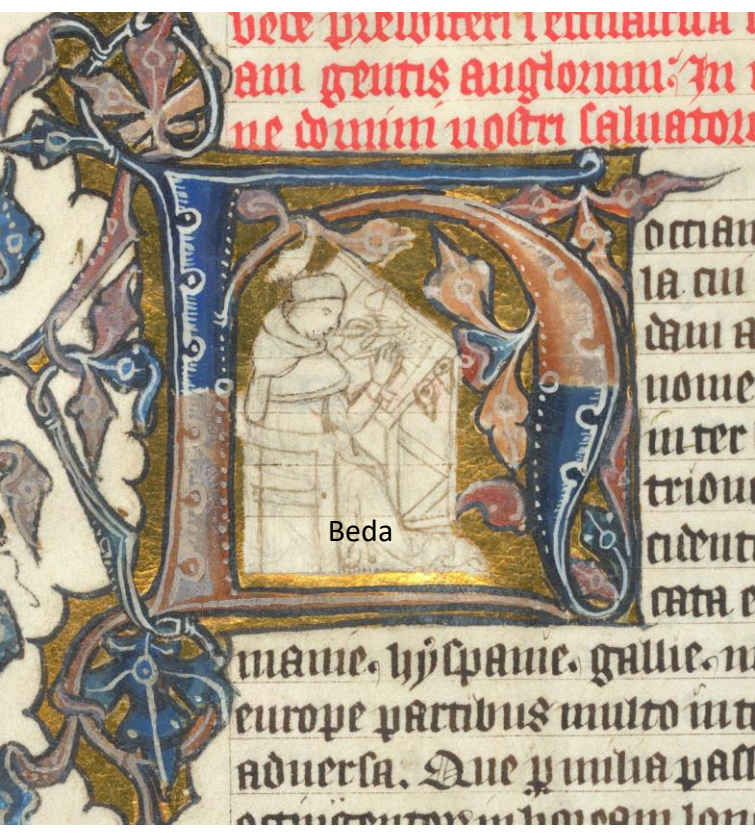 presbiteri
am gentis anglorum: In
ne domini nostri saluator
occian
la cui
dam a
nome
inter
triou
cident
cata e
Beda
manie. hyspanie. gallie.
europe partibus multo int
aduersa. Que p milia pass
in boream lon